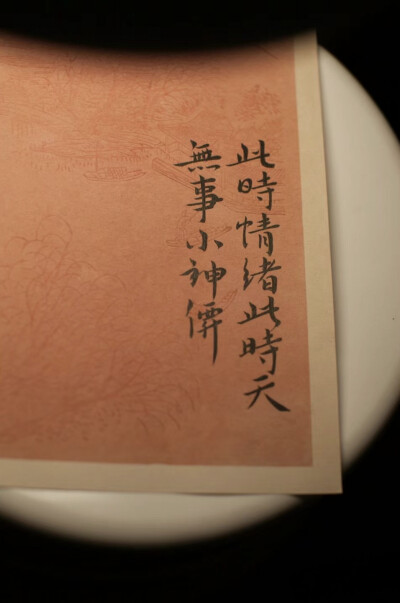 此時情緒此時天
無事小神僊